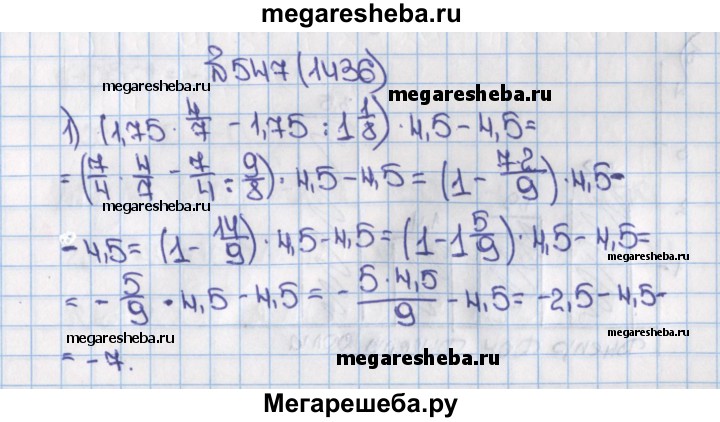 megaresheba.ru
№547(1436)
megaresheba.ru
megaresheba.ru
1) (1,75 · 4/7 - 1,75 : 1 1/8) · 4,5 - 4,5 =
= (7/4 · 4/7 - 7/4 : 9/8) · 4,5 - 4,5 = (1 - 7·2/9) · 4,5 -
megaresheba.ru
megaresheba.ru
- 4,5 = (1 - 14/9) · 4,5 - 4,5 = (1 - 1 5/9) · 4,5 - 4,5 =
megaresheba.ru
= - 5/9 · 4,5 - 4,5 = - 5·4,5/9 - 4,5 = -2,5 - 4,5 -
megaresheba.ru
megaresheba.ru
= -7.
Мегарешеба.ру